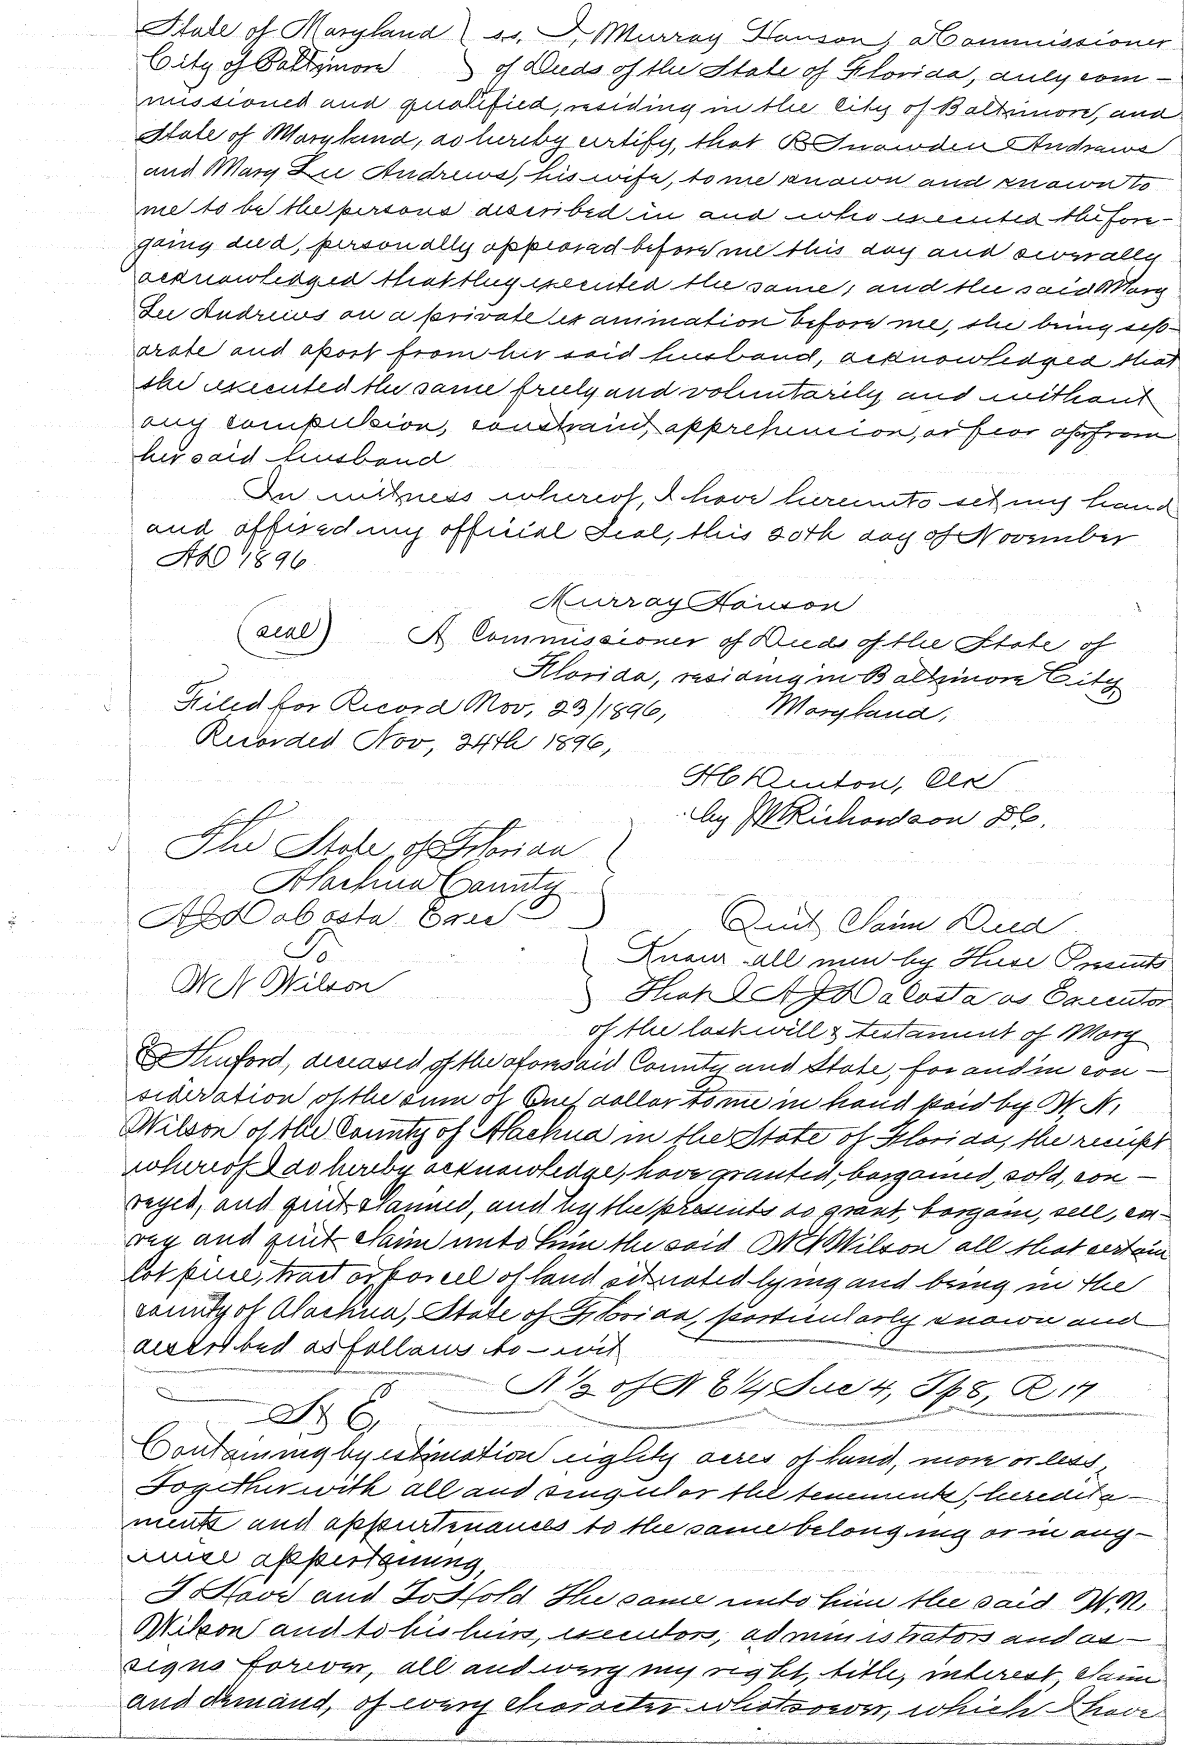 State of Maryland } ss. I, Murray Hanson, a Commissioner
City of Baltimore } of Deeds of the State of Florida, duly com-
missioned and qualified, residing in the City of Baltimore, and
State of Maryland, do hereby certify, that R Snowden Andrews
and Mary Lee Andrews, his wife, to me known and known to
me to be the persons described in and who executed the fore-
going deed, personally appeared before me this day and severally
acknowledged that they executed the same; and the said Mary
Lee Andrews on a private examination before me, she being sep-
arate and apart from her said husband, acknowledged that
she executed the same freely and voluntarily and without
any compulsion, constraint, apprehension, or fear of or from
her said husband
In witness whereof, I have hereunto set my hand
and affixed my official Seal, this 20th day of November
AD 1896
Murray Hanson
(seal) A Commissioner of Deeds of the State of
Florida, residing in Baltimore City
Filed for Record Nov, 23/1896, Maryland,
Recorded Nov, 24th 1896,
H C Denton, Clk
by J W Richardson D C.
The State of Florida }
Alachua County
A J DaCosta Exec
Quit Claim Deed
To
Know all men by These Presents
W N Wilson } That I A J DaCosta as Executor
of the last will & testament of Mary
E , deceased of the aforesaid County and State, for and in con-
sideration of the sum of One dollar to me in hand paid by W. N.
Wilson of the County of Alachua in the State of Florida, the receipt
whereof I do hereby acknowledge, have granted, bargained, sold, con-
veyed, and quit claimed, and by the presents do grant, bargain, sell, con-
vey and quit claim unto him the said W N Wilson all that certain
lot piece, tract or parcel of land situated lying and being in the
county of Alachua, State of Florida, particularly known and
described as follows to-wit
N ½ of N E ¼ Sec 4, Tp 8, R 17
S R E,
Containing by estimation eighty acres of land, more or less,
Together with all and singular the tenements, heredita-
ments and appurtenances to the same belonging or in any-
wise appertaining,
To Have and To Hold The same unto him the said W. N.
Wilson and to his heirs, executors, administrators and as-
signs forever, all and every my right, title, interest, claim
and demand, of every character whatsoever, which I have